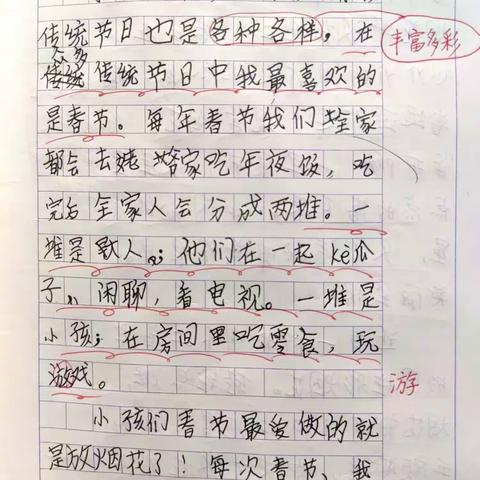 传统节日也是各种各样，在
丰富多彩
众多
传统传统节日中我最喜欢的
是春节。每年春节我们全家
都会去姥姥家吃年夜饭，吃
完后全家人会分成两堆。一
堆是大人，他们在一起kè瓜
子，闲聊，看电视。一堆是
小孩，在房间里吃零食，玩
游戏。
游
小孩们春节最爱做的就
是放烟花了！每次春节、我